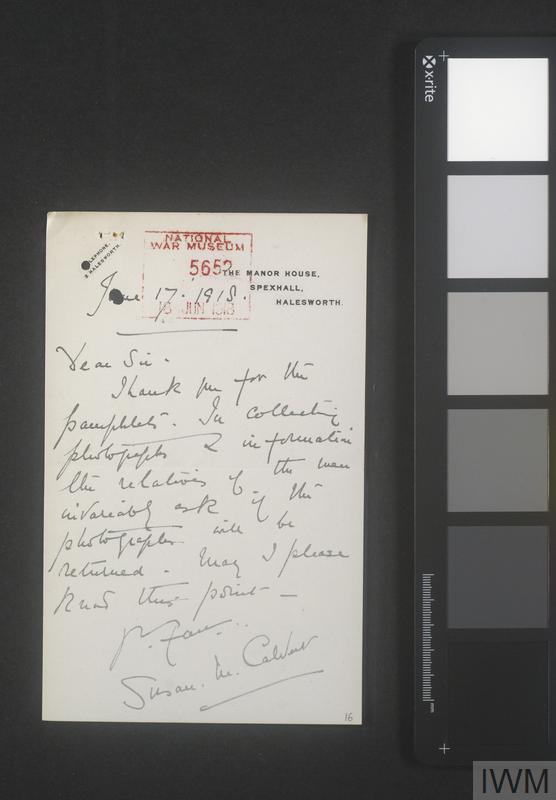 x-rite
LEPHONE,
HALESWORTH.
NATIONAL
WAR MUSEUM
5652
18 JUN 1918
THE MANOR HOUSE,
SPEXHALL,
HALESWORTH.
June 17. 1918.
Dear Sir -
Thank you for the
pamphlets. In collecting
photographs & information
the relatives of the men
invariably ask if the
photographs will be
returned. May I please
know this point -
Susan. M. Calvert
16
mm
IWM